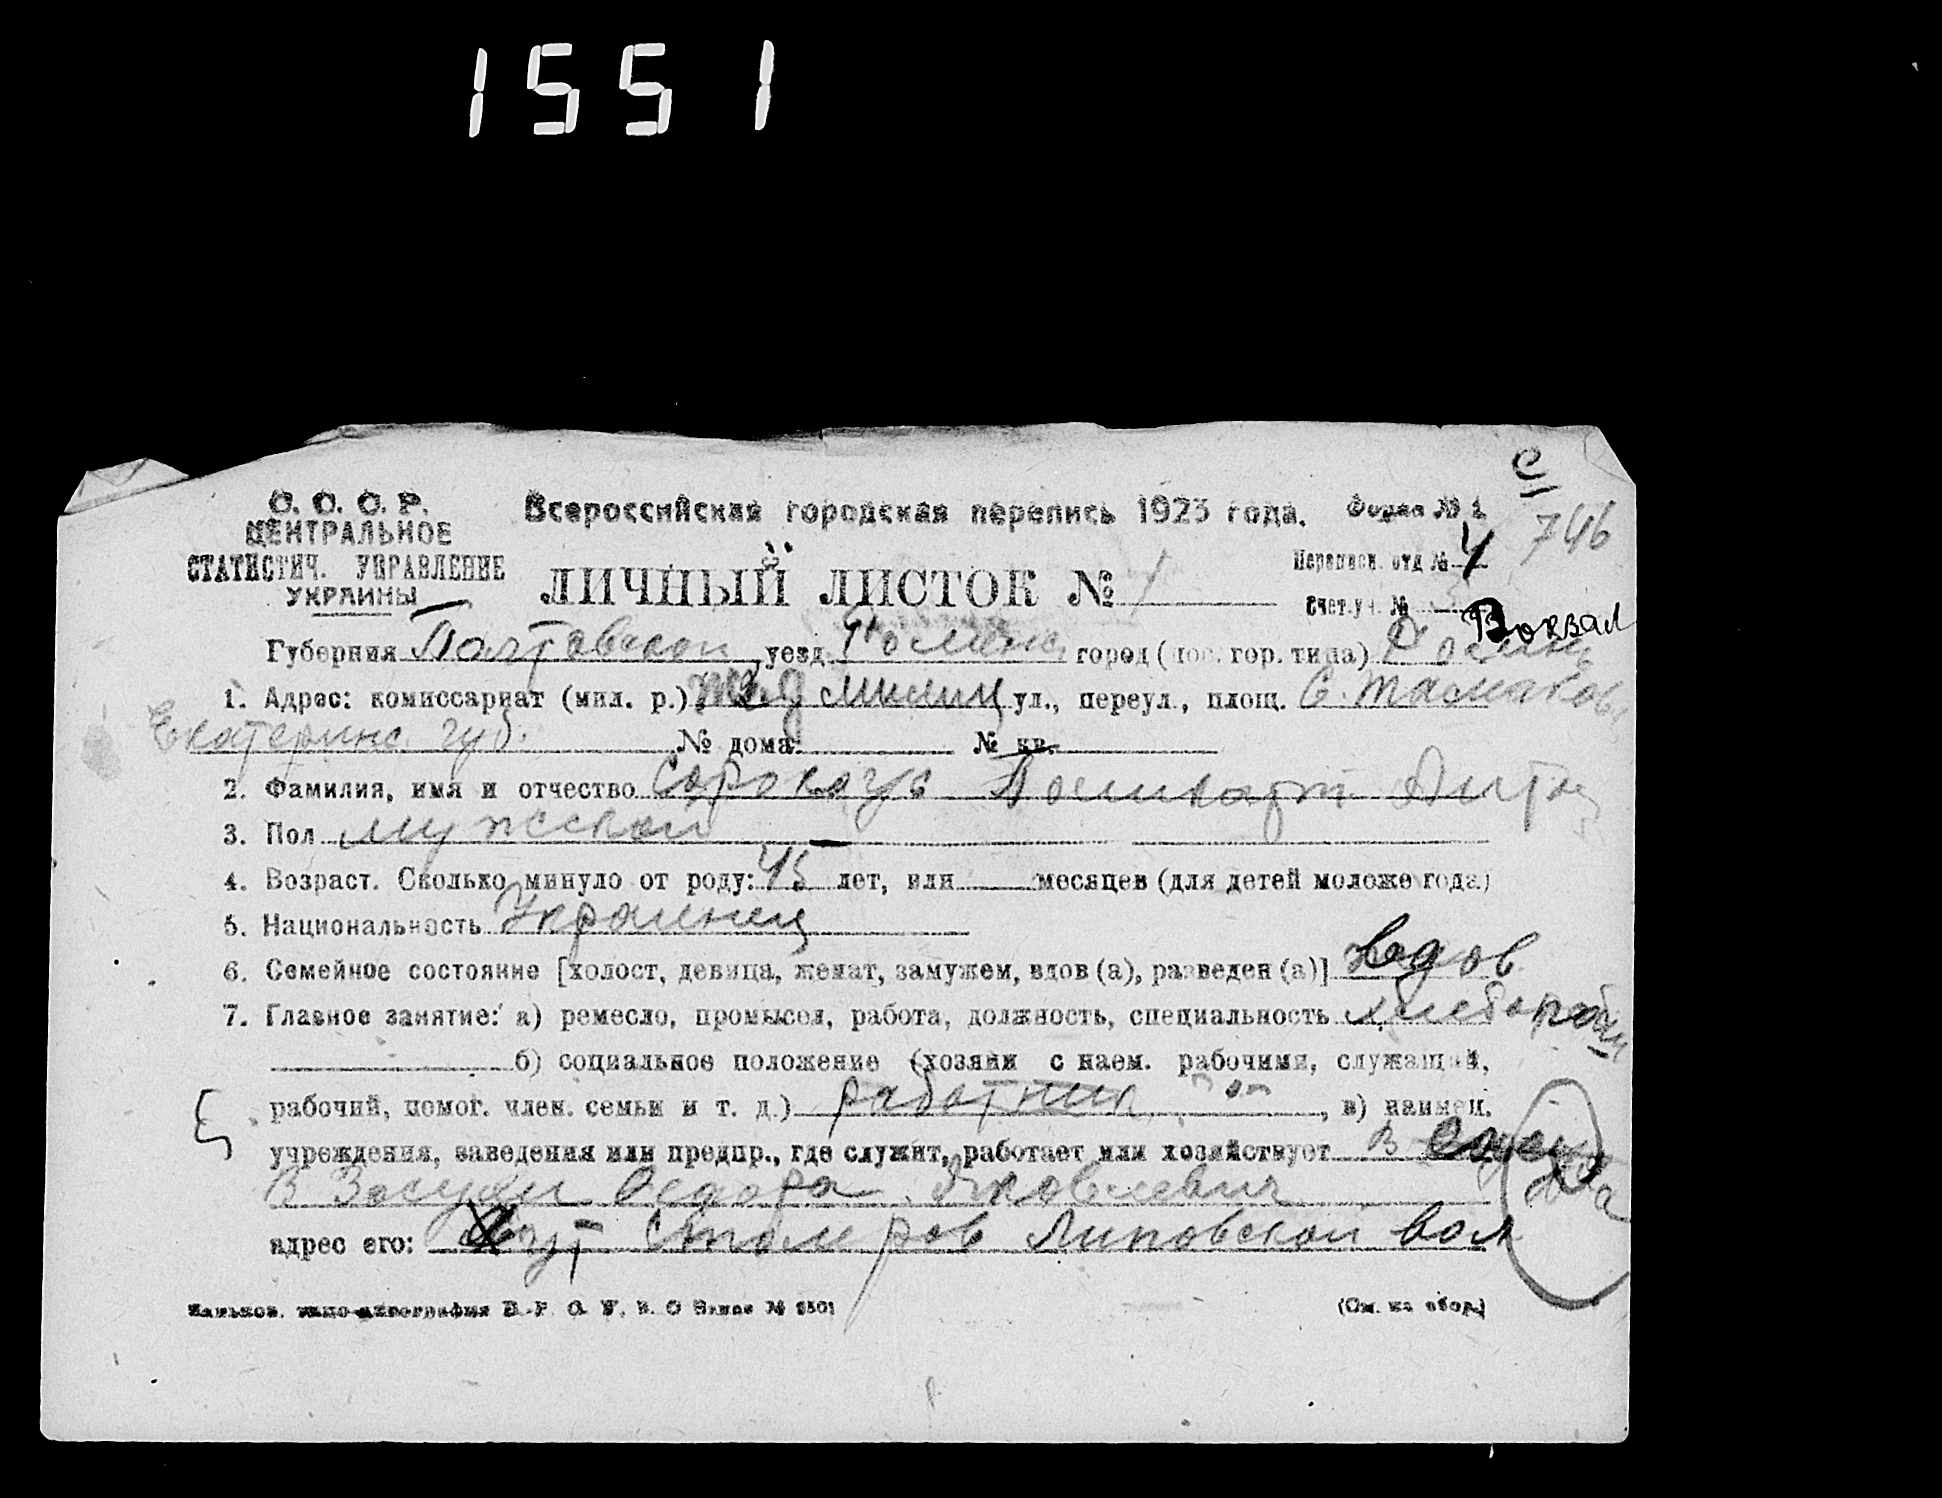 1551
С. С. С. Р.
ЦЕНТРАЛЬНОЕ
СТАТИСТИЧ. УПРАВЛЕНИЕ
УКРАИНЫ
Всероссийская городская перепись 1923 года. Форма № 1
746
ЛИЧНЫЙ ЛИСТОК № 1
Переписн. отд № 4
Счет.уч. №
Вокзал
Губерния Полтавской уезд Роменск город (пос. гор. типа)
1. Адрес: комиссариат (мил. р.) милиц ул., переул., площ. С. Томаковк
Екатеринс. губ. № дома № кв.
2. Фамилия, имя и отчество
3. Пол мужской
4. Возраст. Сколько минуло от роду: 45 лет, или месяцев (для детей моложе года)
5. Национальность Украинец
6. Семейное состояние [холост, девица, женат, замужем, вдов (а), разведен (а)] вдов
7. Главное занятие: а) ремесло, промысел, работа, должность, специальность хлебороб
б) социальное положение (хозяин с наем. рабочими, служащий,
рабочий, помог. член. семьи и т. д.) работник, в) наимен.
учреждения, заведения или предпр., где служит, работает или хозяйствует В
В Яковлевич
адрес его: Хут Липовской вол
(См. на обор.)